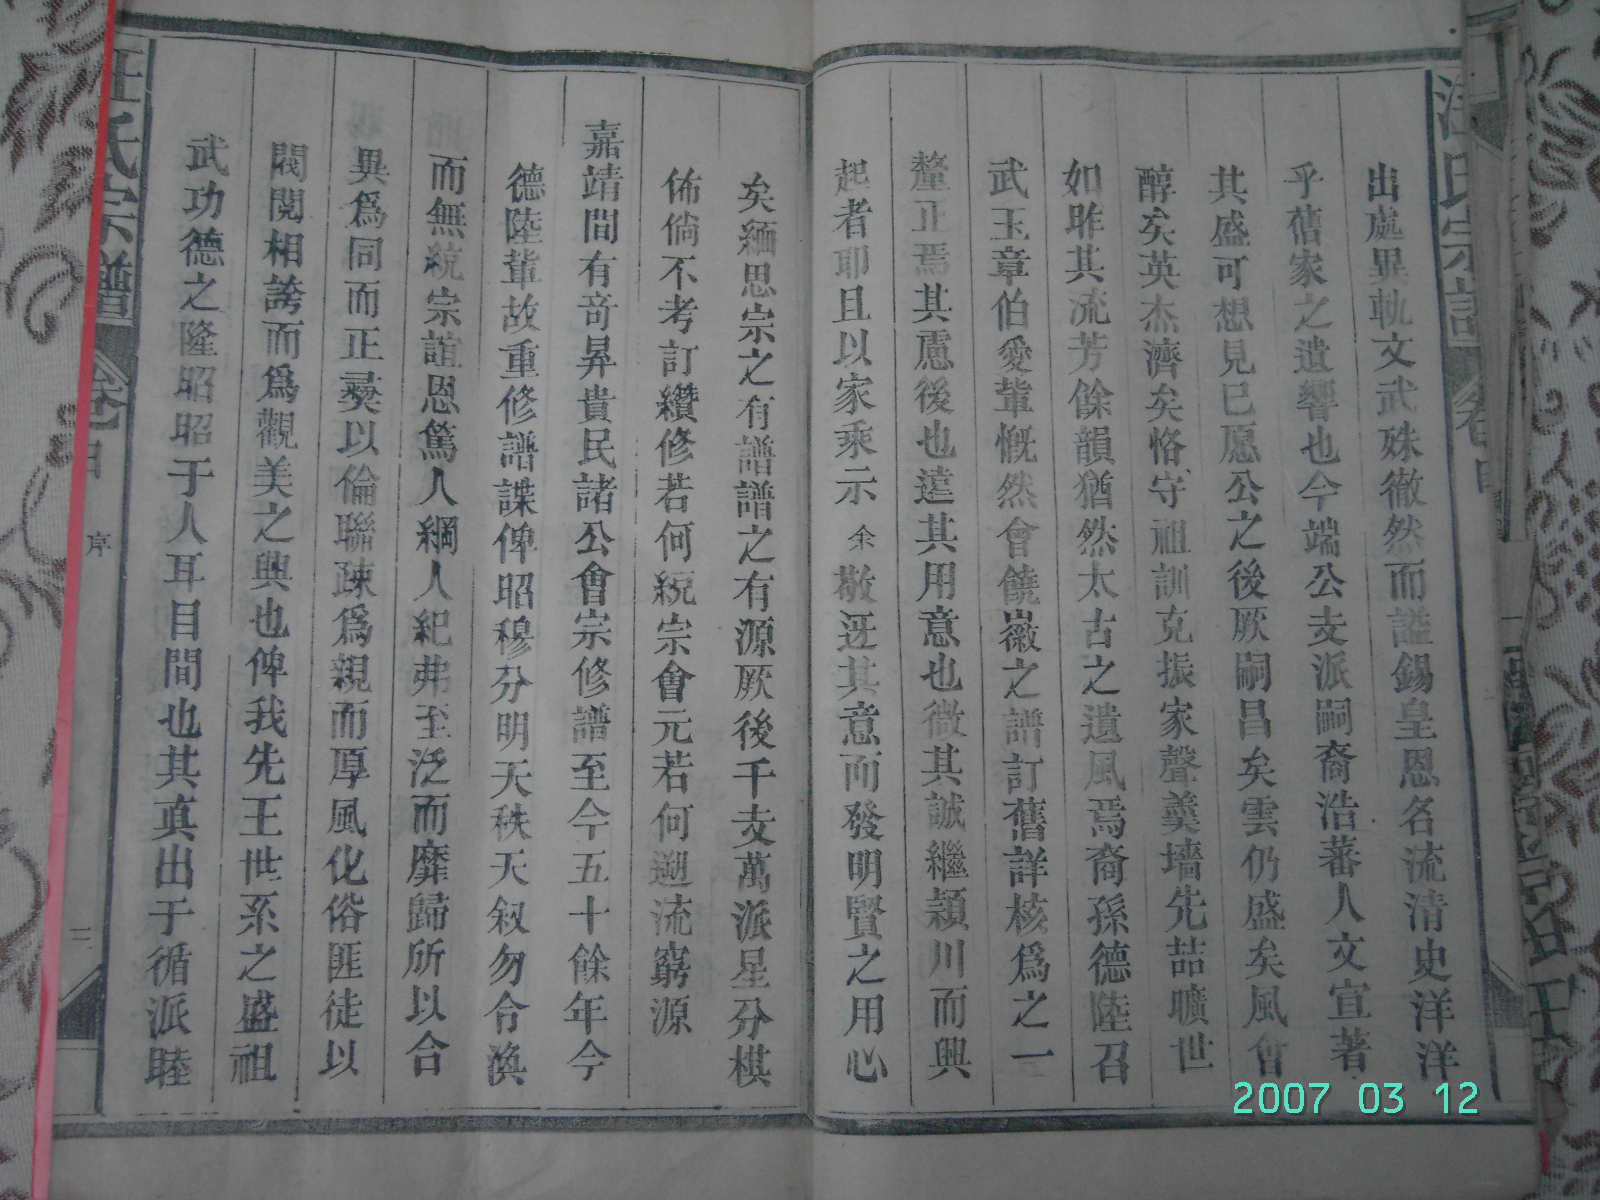 汪氏宗譜 卷首
出處異軌文武殊徹然而謚錫皇恩名流清史洋洋
乎舊家之遺響也今端公支派嗣裔浩蕃人文宣著
其盛可想見已愿公之後厥嗣昌矣雲仍盛矣風會
醇矣英杰濟矣恪守祖訓克振家聲羹墻先喆曠世
如昨其流芳餘韻猶然太古之遺風焉裔孫德陸召
武玉章伯愛輩慨然會饒徽之譜訂舊詳核為之一
釐正焉其慮後也遠其用意也微其誠繼潁川而興
起者耶且以家乘示余敬迓其意而發明賢之用心
矣緬思宗之有譜譜之有源厥後千支萬派星分棋
佈倘不考訂纘修若何統宗會元若何遡流窮源
嘉靖間有奇昇貴民諸公會宗修譜至今五十餘年今
德陸輩故重修譜諜俾昭穆分明天秩天叙勿合渙
而無統宗誼恩篤人綱人紀弗至泛而靡歸所以合
異為同而正彝以倫聯疎為親而厚風化俗匪徒以
閥閱相誇而為觀美之具也俾我先王世系之盛祖
武功德之隆昭昭于人耳目間也其真出于循派睦
汪氏宗譜 卷首 序 二
2007 03 12